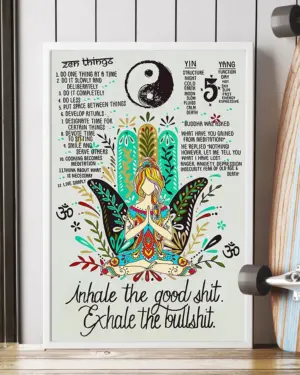 Zen Things
1. DO ONE THING AT A TIME
2. DO IT SLOWLY AND
DELIBERATELY
3. DO IT COMPLETELY
4. DO LESS
5. PUT SPACE BETWEEN THINGS
6. DEVELOP RITUALS
7. DESIGNATE TIME FOR
CERTAIN THINGS
8. DEVOTE TIME
TO SITTING
9. SMILE AND
SERVE OTHERS
10. COOKING BECOMES
MEDITATION
11. THINK ABOUT WHAT
IS NECESSARY
12. LIVE SIMPLY
YIN YANG
STRUCTURE FUNCTION
NIGHT DAY
COLD
DEATH
5
BUDDHA WAS ASKED
WHAT HAVE YOU GAINED
FROM MEDITATION?
HE REPLIED "NOTHING!
HOWEVER, LET ME TELL YOU
WHAT I HAVE LOST
ANGER, ANXIETY, DEPRESSION
INSECURITY, FEAR OF OLD AGE &
DEATH
ॐ
ॐ
Inhale the good shit.
Exhale the bullshit.